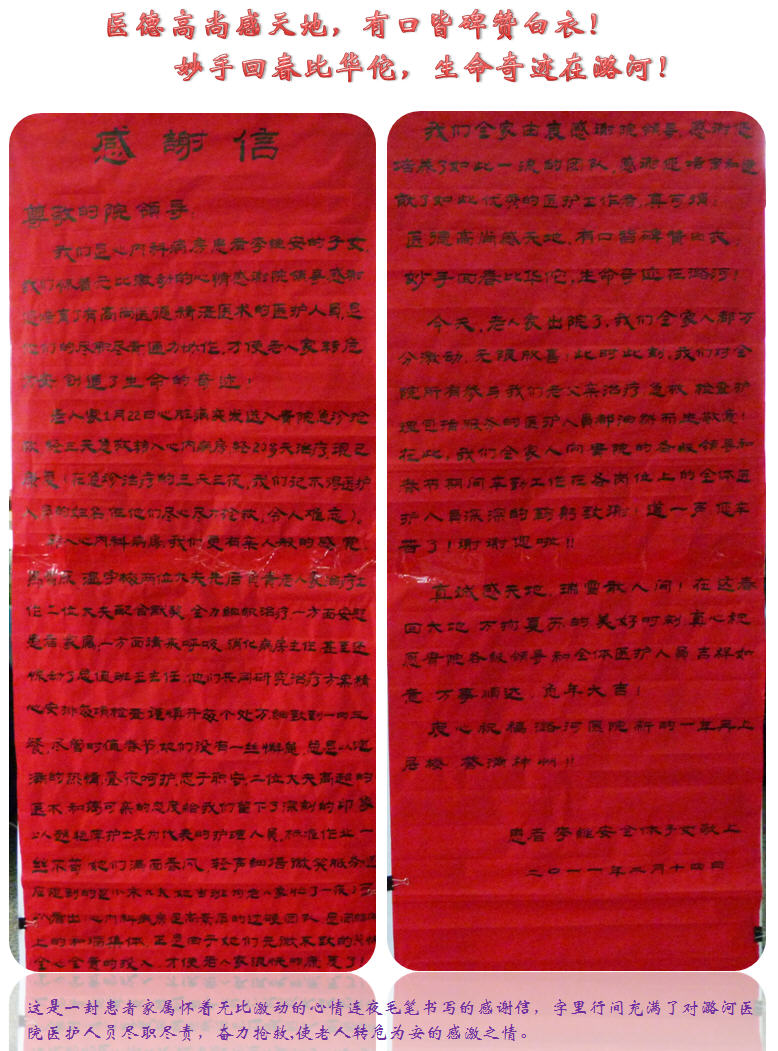 医德高尚感天地，有口皆碑赞白衣！
妙手回春比华佗，生命奇迹在潞河！
感謝信
尊敬的院领导：
我们是心内科病房患者李维安的子女，
我们怀着无比激动的心情感谢院领导感谢
您培育了有高尚医德，精湛医术的医护人员，是
他们的尽职尽责通力协作，才使老人家转危
为安创造了生命的奇迹！
老人家1月22日心脏病突发送入贵院急诊抢
救，经三天急救转入心内病房，经20多天治疗现已
康复（在急诊治疗的三天三夜，我们记不得医护
人员的姓名但他们尽心尽力抢救，令人难忘）。
转入心内科病房，我们更有亲人般的感觉，
两位大夫先后负责老人家治疗工
作二位大夫配合默契，全力组织治疗，一方面安慰
患者家属，一方面请来呼吸，消化病房主任甚至还
惊动了总值班王主任，他们共同研究治疗方案精
心安排每项检查谨慎开每个处方，细致到一日三
餐，尽管时值春节她们没有一丝懈怠，总是以满
腔的热情，昼夜呵护，忠于职守，二位大夫高超的
医术，和蔼可亲的态度给我们留下了深刻的印象
护士长为代表的护理人员，标准作业一
丝不苟，她们满面春风，轻声细语微笑服务
心内科病房是高素质的过硬团队，是
上的和谐集体，正是由于她们无微不致的关怀
全心全意的投入，才使老人家很快的康复了！
我们全家由衷感谢院领导，感谢您
培养了如此一流的团队，感谢您培育和造
就了如此优秀的医护工作者，真可谓：
医德高尚感天地，有口皆碑赞白衣，
妙手回春比华佗，生命奇迹在潞河！
今天，老人家出院了，我们全家人都万
分激动，无限欣喜！此时此刻，我们对全
院所有参与我们老父亲治疗，急救，检查护
理包括服务的医护人员都油然而生敬意！
在此，我们全家人向贵院的各级领导和
春节期间辛勤工作在各岗位上的全体医
护人员深深的鞠躬致谢！道一声您辛
苦了！谢谢您啦！！
真诚感天地，瑞雪散人间！在这春
回大地，万物复苏的美好时刻，真心祝
愿贵院各级领导和全体医护人员吉祥如
意，万事顺达，兔年大吉！
衷心祝福潞河医院新的一年再上
层楼，誉满神州！！
患者李维安全体子女敬上
二〇一一年二月十四日
这是一封患者家属怀着无比激动的心情连夜毛笔书写的感谢信，字里行间充满了对潞河医
院医护人员尽职尽责，奋力抢救,使老人转危为安的感激之情。